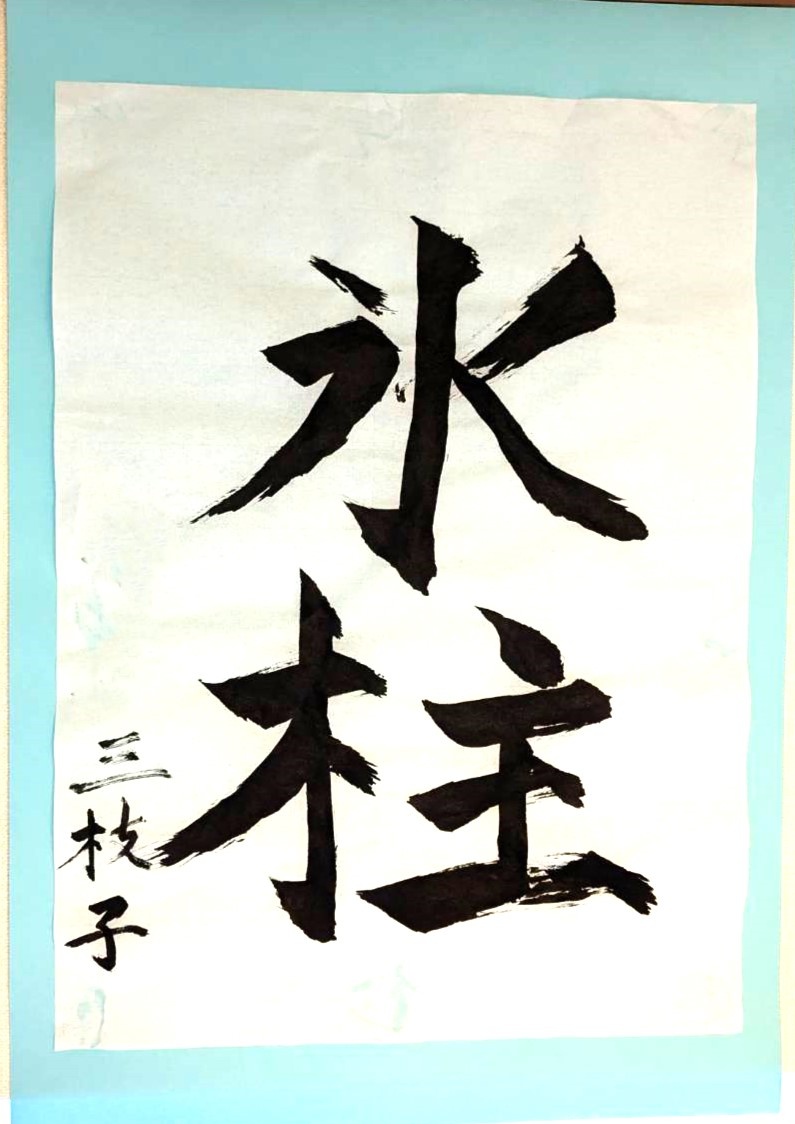 氷柱
三枝子